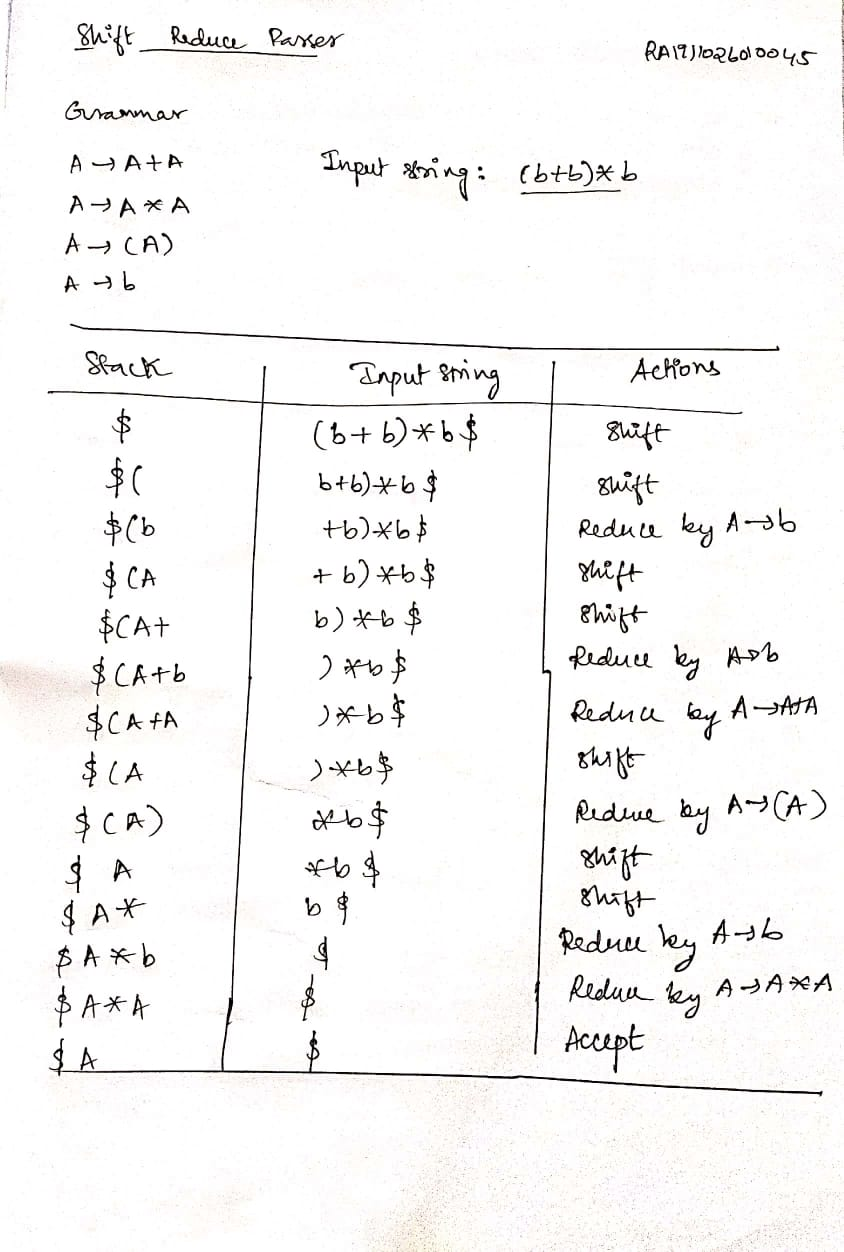 Shift Reduce Parser
RA1911026010045
Grammar
A → A+A
Input string: (b+b)*b
A → A * A
A → (A)
A → b
Stack Input string Actions
$ (b+b)*b$ Shift
$( b+b)*b$ Shift
$(b +b)*b$ Reduce by A→b
$(A +b)*b$ Shift
$(A+ b)*b$ Shift
$(A+b )*b$ Reduce by A→b
$(A+A )*b$ Reduce by A→A+A
$(A )*b$ Shift
$(A) *b$ Reduce by A→(A)
$ A *b$ Shift
$ A* b$ Shift
$ A*b $ Reduce by A→b
$ A*A $ Reduce by A→A*A
$ A $ Accept